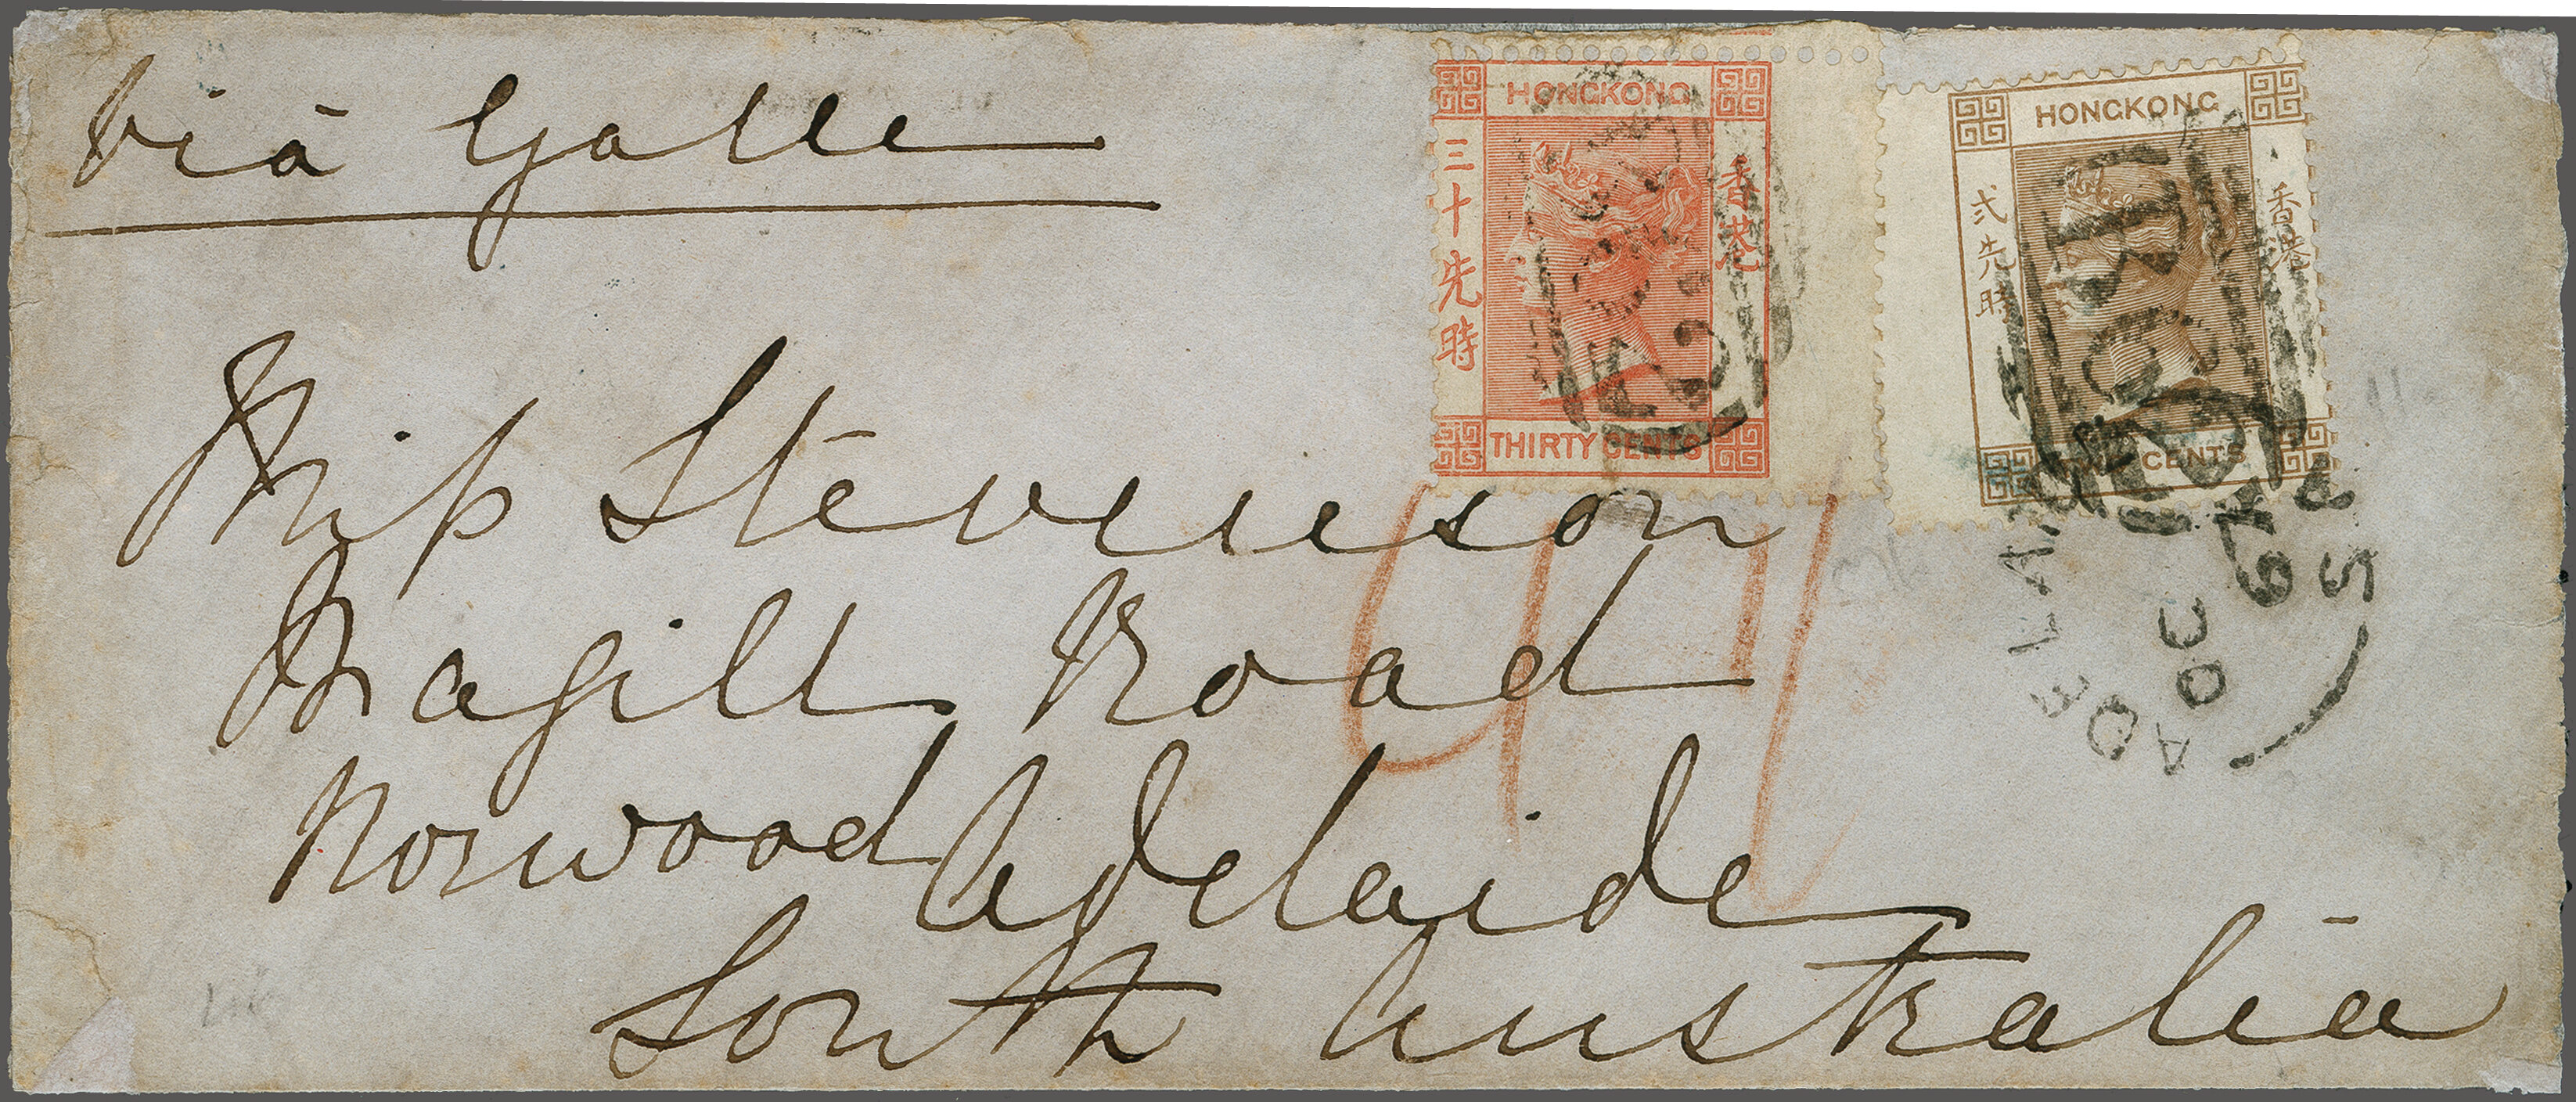 Viā Galle
HONGKONG
三十先時
香港
THIRTY CENTS
HONGKONG
弍先時
香港
CENTS
Miss Stevenson
Magill Road
Norwood Adelaide
South Australia
ADELAIDE
S A
OC
67
D1